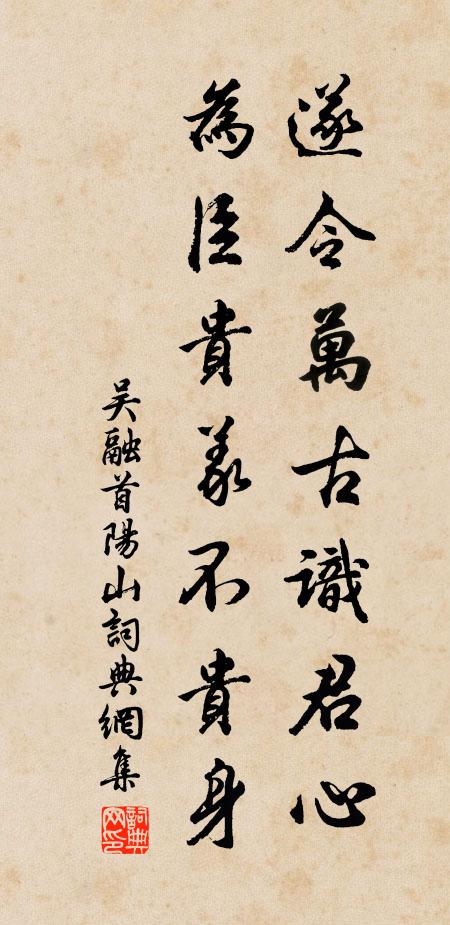 遂令萬古識君心
為臣貴義不貴身
吴融首陽山詞典網集
詞典網印